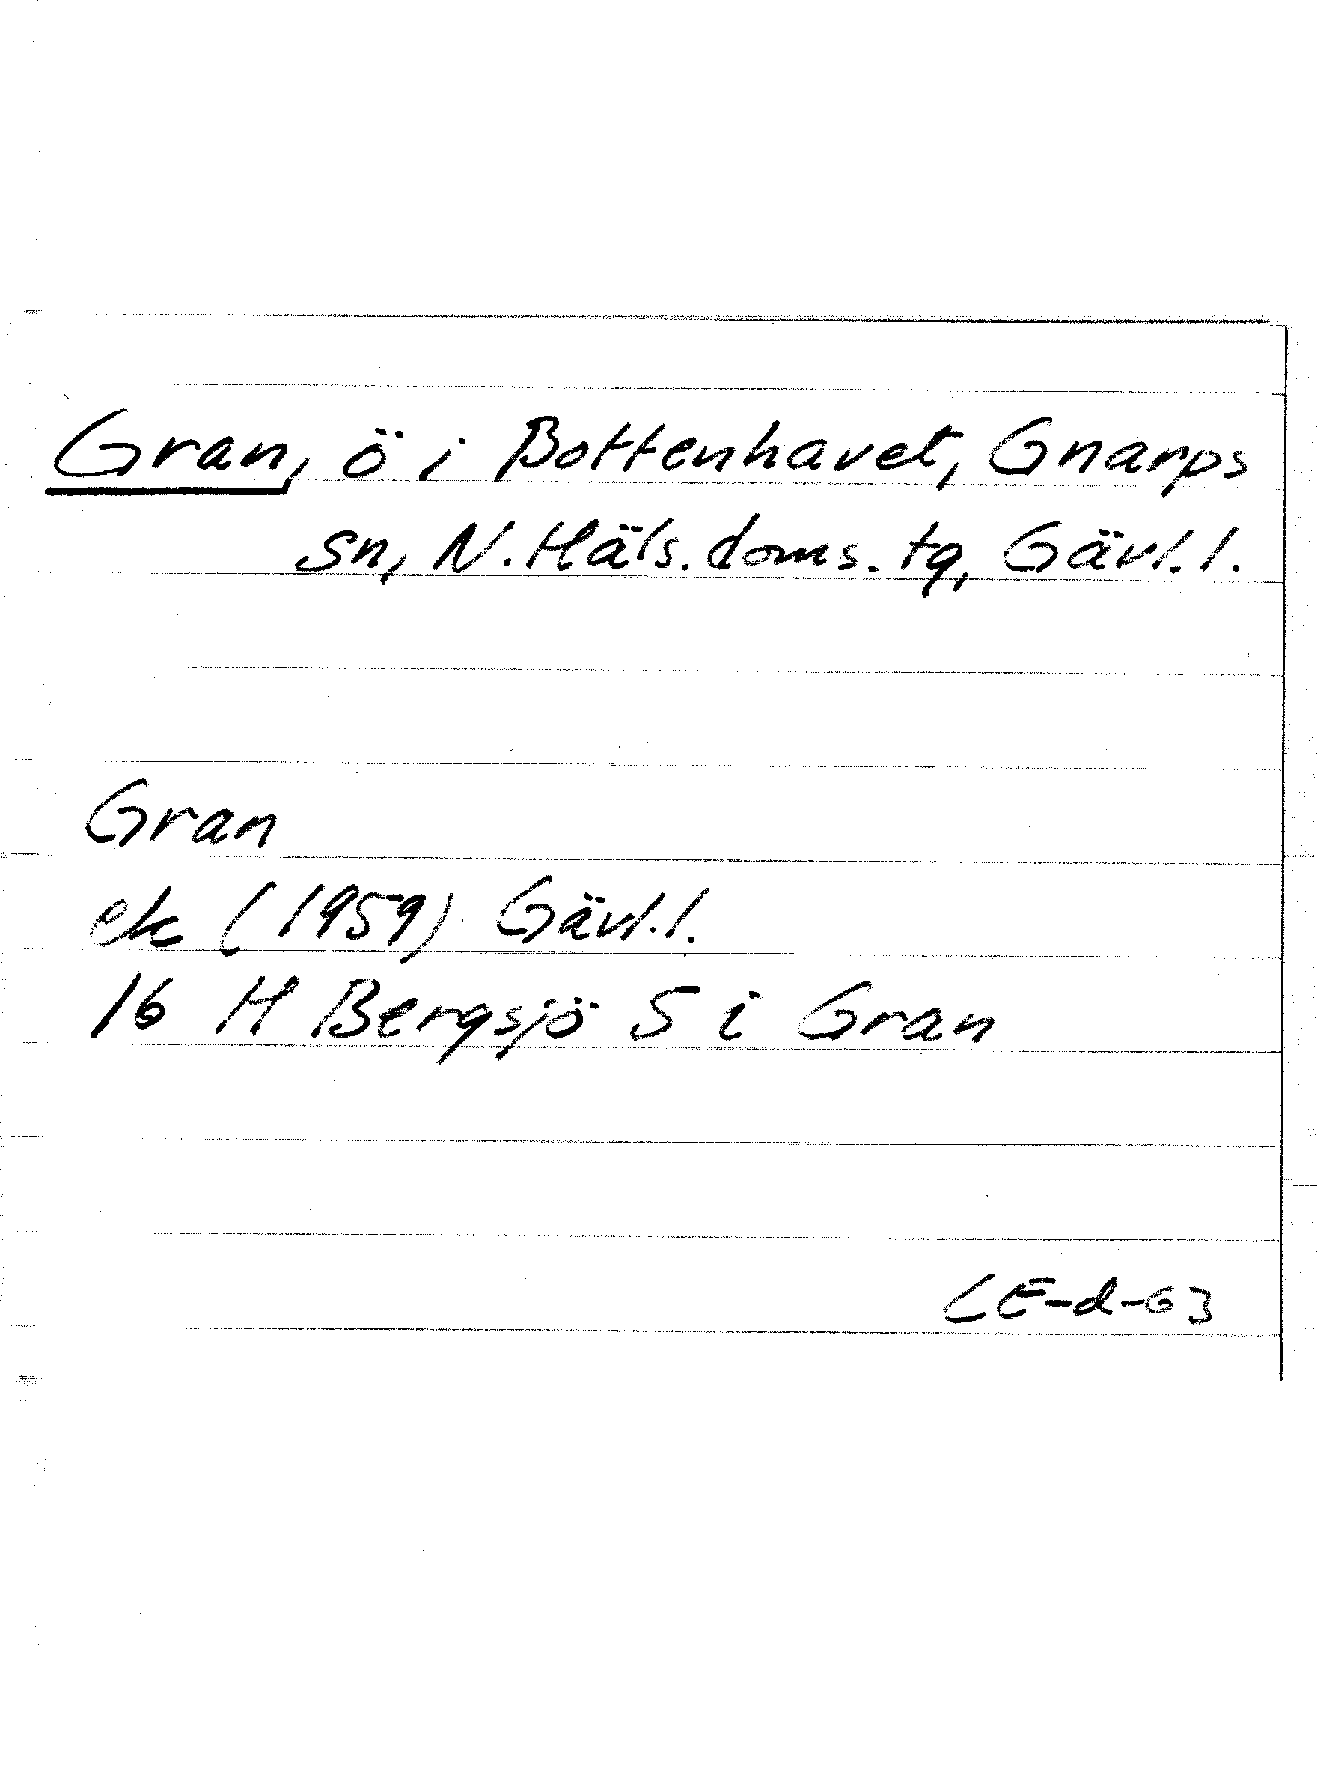 Gran, ö i Bottenhavet, Gnarps
sn, N. Häls. doms. tg, Gävl. l.
Gran
ek (1959) Gävl. l.
16 H Bergsjö S i Gran
LE-d-63